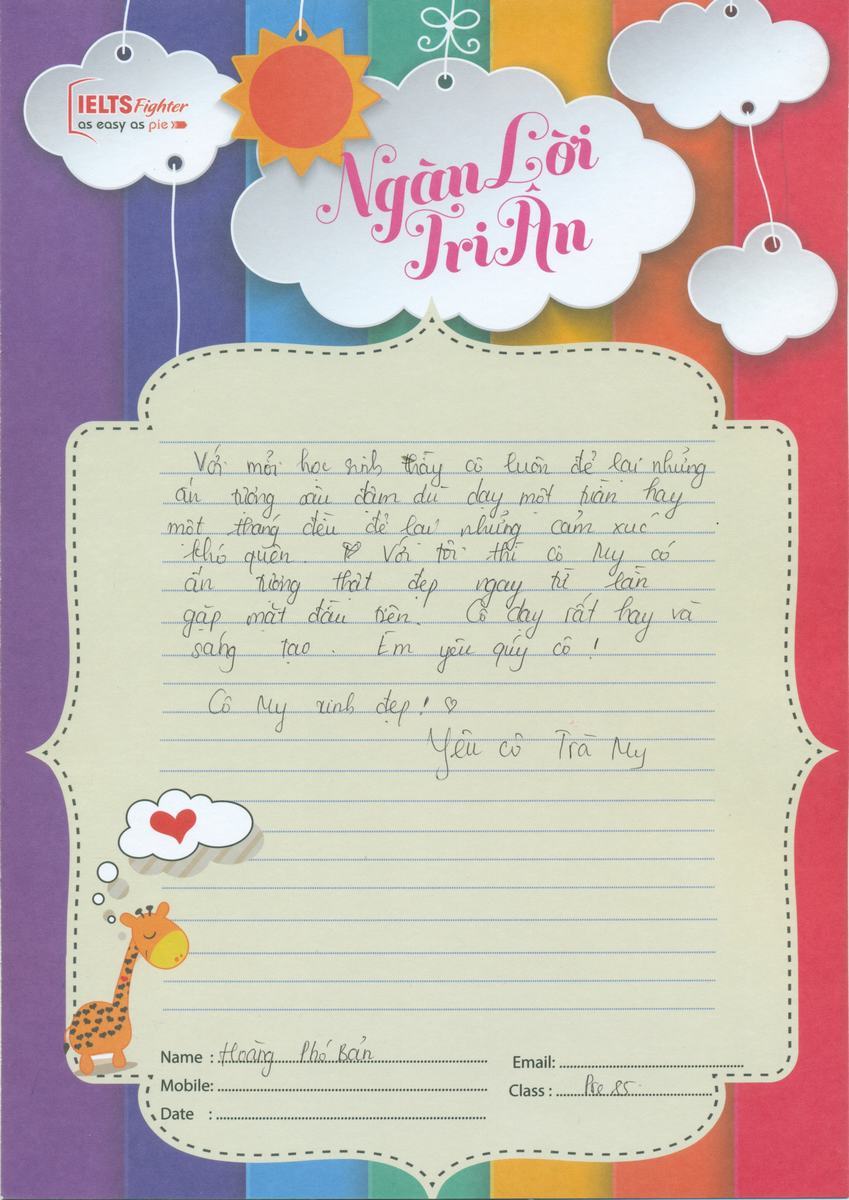 IELTS Fighter
as easy as pie
Ngàn Lời
Tri Ân
Với mỗi học sinh thầy cô luôn để lại những
ấn tượng sâu đậm dù dạy một tuần hay
một tháng đều để lại những cảm xúc
khó quên. ♡ Với tôi thì cô My có
ấn tượng thật đẹp ngay từ lần
gặp mặt đầu tiên. Cô dạy rất hay và
sáng tạo. Em yêu quý cô!
Cô My xinh đẹp! ♡
Yêu cô Trà My
Name : Hoàng Phó Bản
Email:
Mobile:
Class : Pre 85
Date :